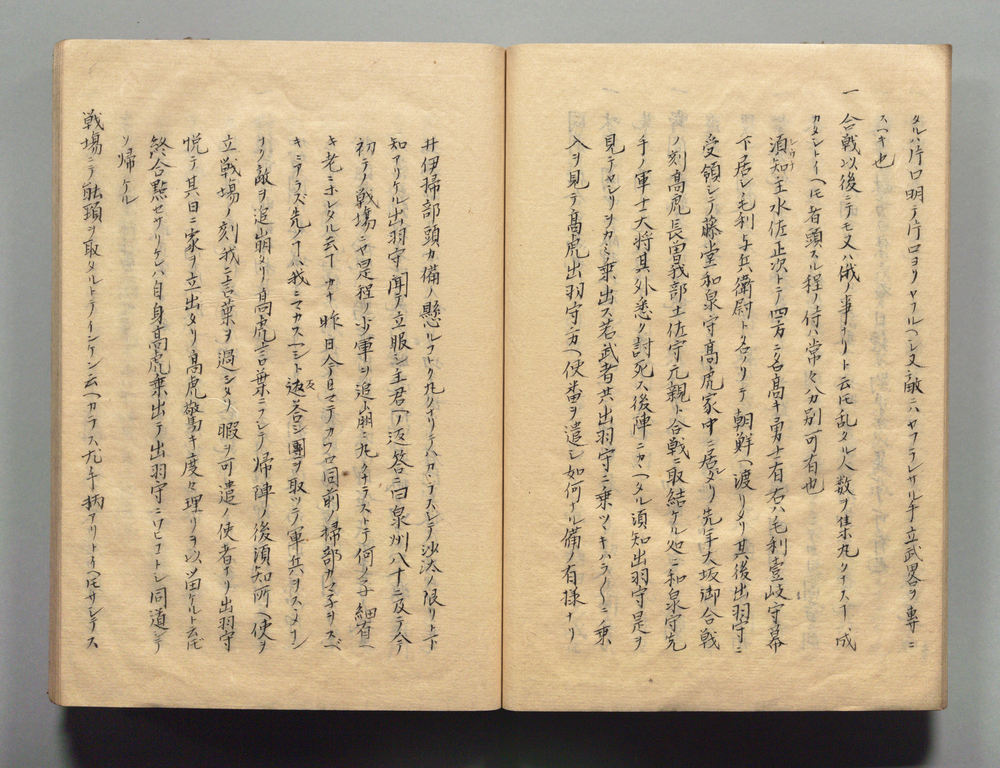 タルハ片口明テ片口ヨリヤフルヘシ又敵ニハヤフラレサル手立武畧ヲ專ニ
スヘキ也
一合戦以後ニテモ又ハ俄ノ事ナリト云𪜈乱タル人数ヲ集丸クイスコト成
カタシトイヘ𪜈者頭スル程ノ侍ハ常々分別可有也
須知主水佐正次トテ四方ニ名高キ勇士有右ハ毛利壹岐守幕
下居シ毛利与兵衛尉ト名ノリテ朝鮮ヘ渡リタリ其後出羽守ニ
受領シテ藤堂和泉守高虎家中ニ居タリ先年大坂御合戦
ノ刻高虎長曽我部土佐守元親ト合戦ニ取結ケル処ニ和泉守先
手ノ軍士大将其外悉ク討死ス後陣ニカヽヘタル須知出羽守是ヲ
見テヤリヲカミ乗出ス若武者共出羽守ニ乗ツヽキハラ〳〵ニ乗
入ヲ見テ高虎出羽守方ヘ使番ヲ遣シ如何ナル備ノ有様ナリ
井伊掃部頭カ備ノ懸ル
知アリケル出羽守聞テ立服シ主君ヘノ返答ニ曰泉州八十ニ及テ今
初テノ戦場ニヤ是程ノ少軍ヲ追崩ニ丸クナラストテ何ノ子細有ヘ
キ老ニホレタル云コトカナ昨日今日マテカフロ同前ノ掃部カマ子ヲスベ
キニアラズ先ノコトハ我ニマカスヘシト返答シ團ヲ取ッテ軍兵ヲスヽメ
ナク敵ヲ追崩タリ高虎言葉ニフレテ帰陣ノ後須知所ヘ使ヲ
立戦場ノ刻我ニ言葉ヲ過シタリ暇ヲ可遣ノ使者ナリ出羽守
悦テ其日ニ家ヲ立出タリ高虎驚キ度々理リヲ以留ケルト云𪜈
終合點セサリケレハ自身高虎乗出テ出羽守ニワヒコトシ同道シテ
ソ帰ケル
戦場ニテ能頭ヲ取タルトテイケン云ヘカラス尤手柄アリトイヘ𪜈サシテス